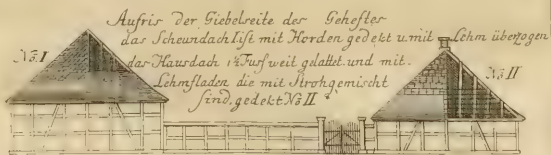 Aufris der Giebelseite des Gehoftes
das Scheundach list mit Horden gedekt u. mit Lehm überzogen
No. I das Hausdach 1½ Fuss weit gelattet. und mit.
Lehmsladen die mit Strohgemischt No II
sind, gedekt No II